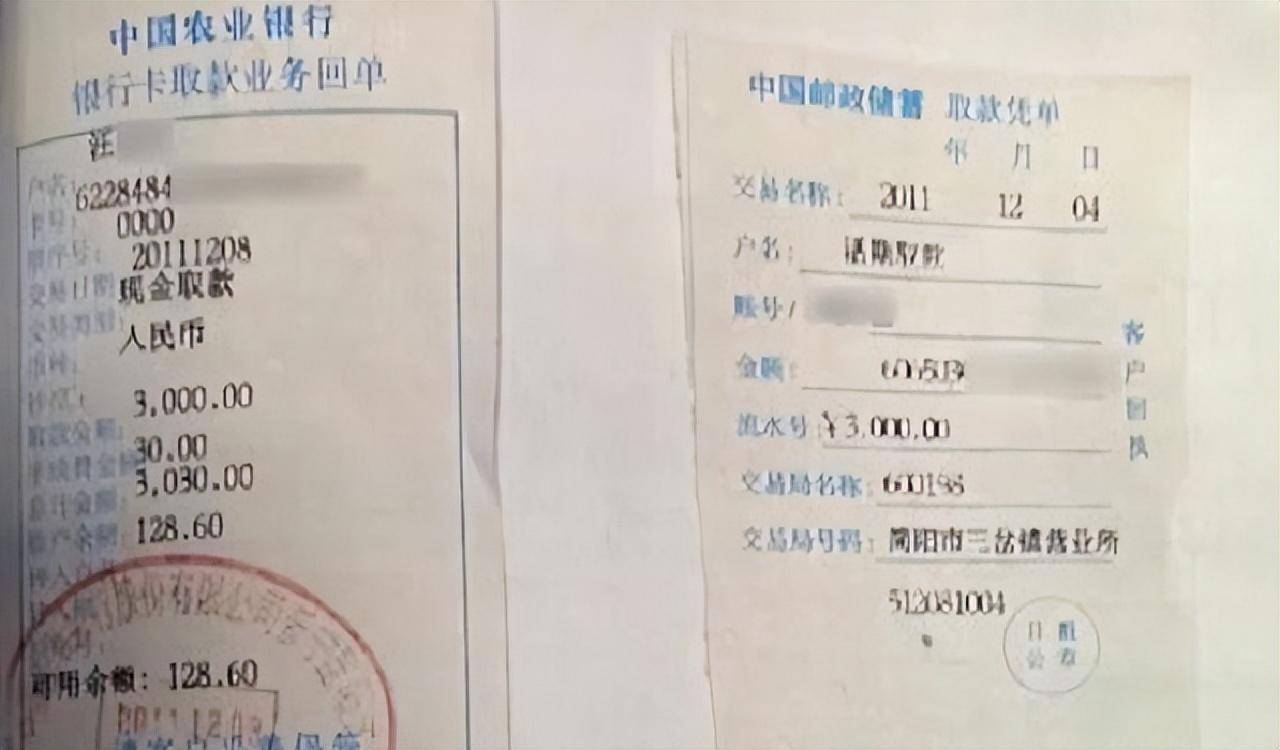 中国农业银行
银行卡取款业务回单
汪
户名:
6228484
卡号:
0000
20111208
交易日期
现金取款
交易类型:
人民币
3,000.00
取款金额:
30.00
手续费金额
3,030.00
合计金额:
账户余额:
128.60
股份有限公司
可用余额: 128.60
中国邮政储蓄 取款凭单
年 月 日
交易名称: 2011 12 04
户名: 活期取款
账号/
金额:
流水号 ¥3,000.00
交易局名称: 600198
交易局号码: 简阳市三岔镇营业所
512081004
客户回执